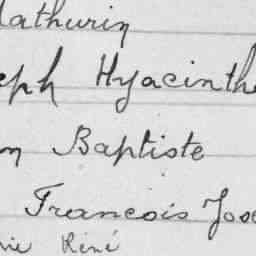 Mathurin
eph Hyacinthe
n Baptiste
Francois Jose
rie Réné